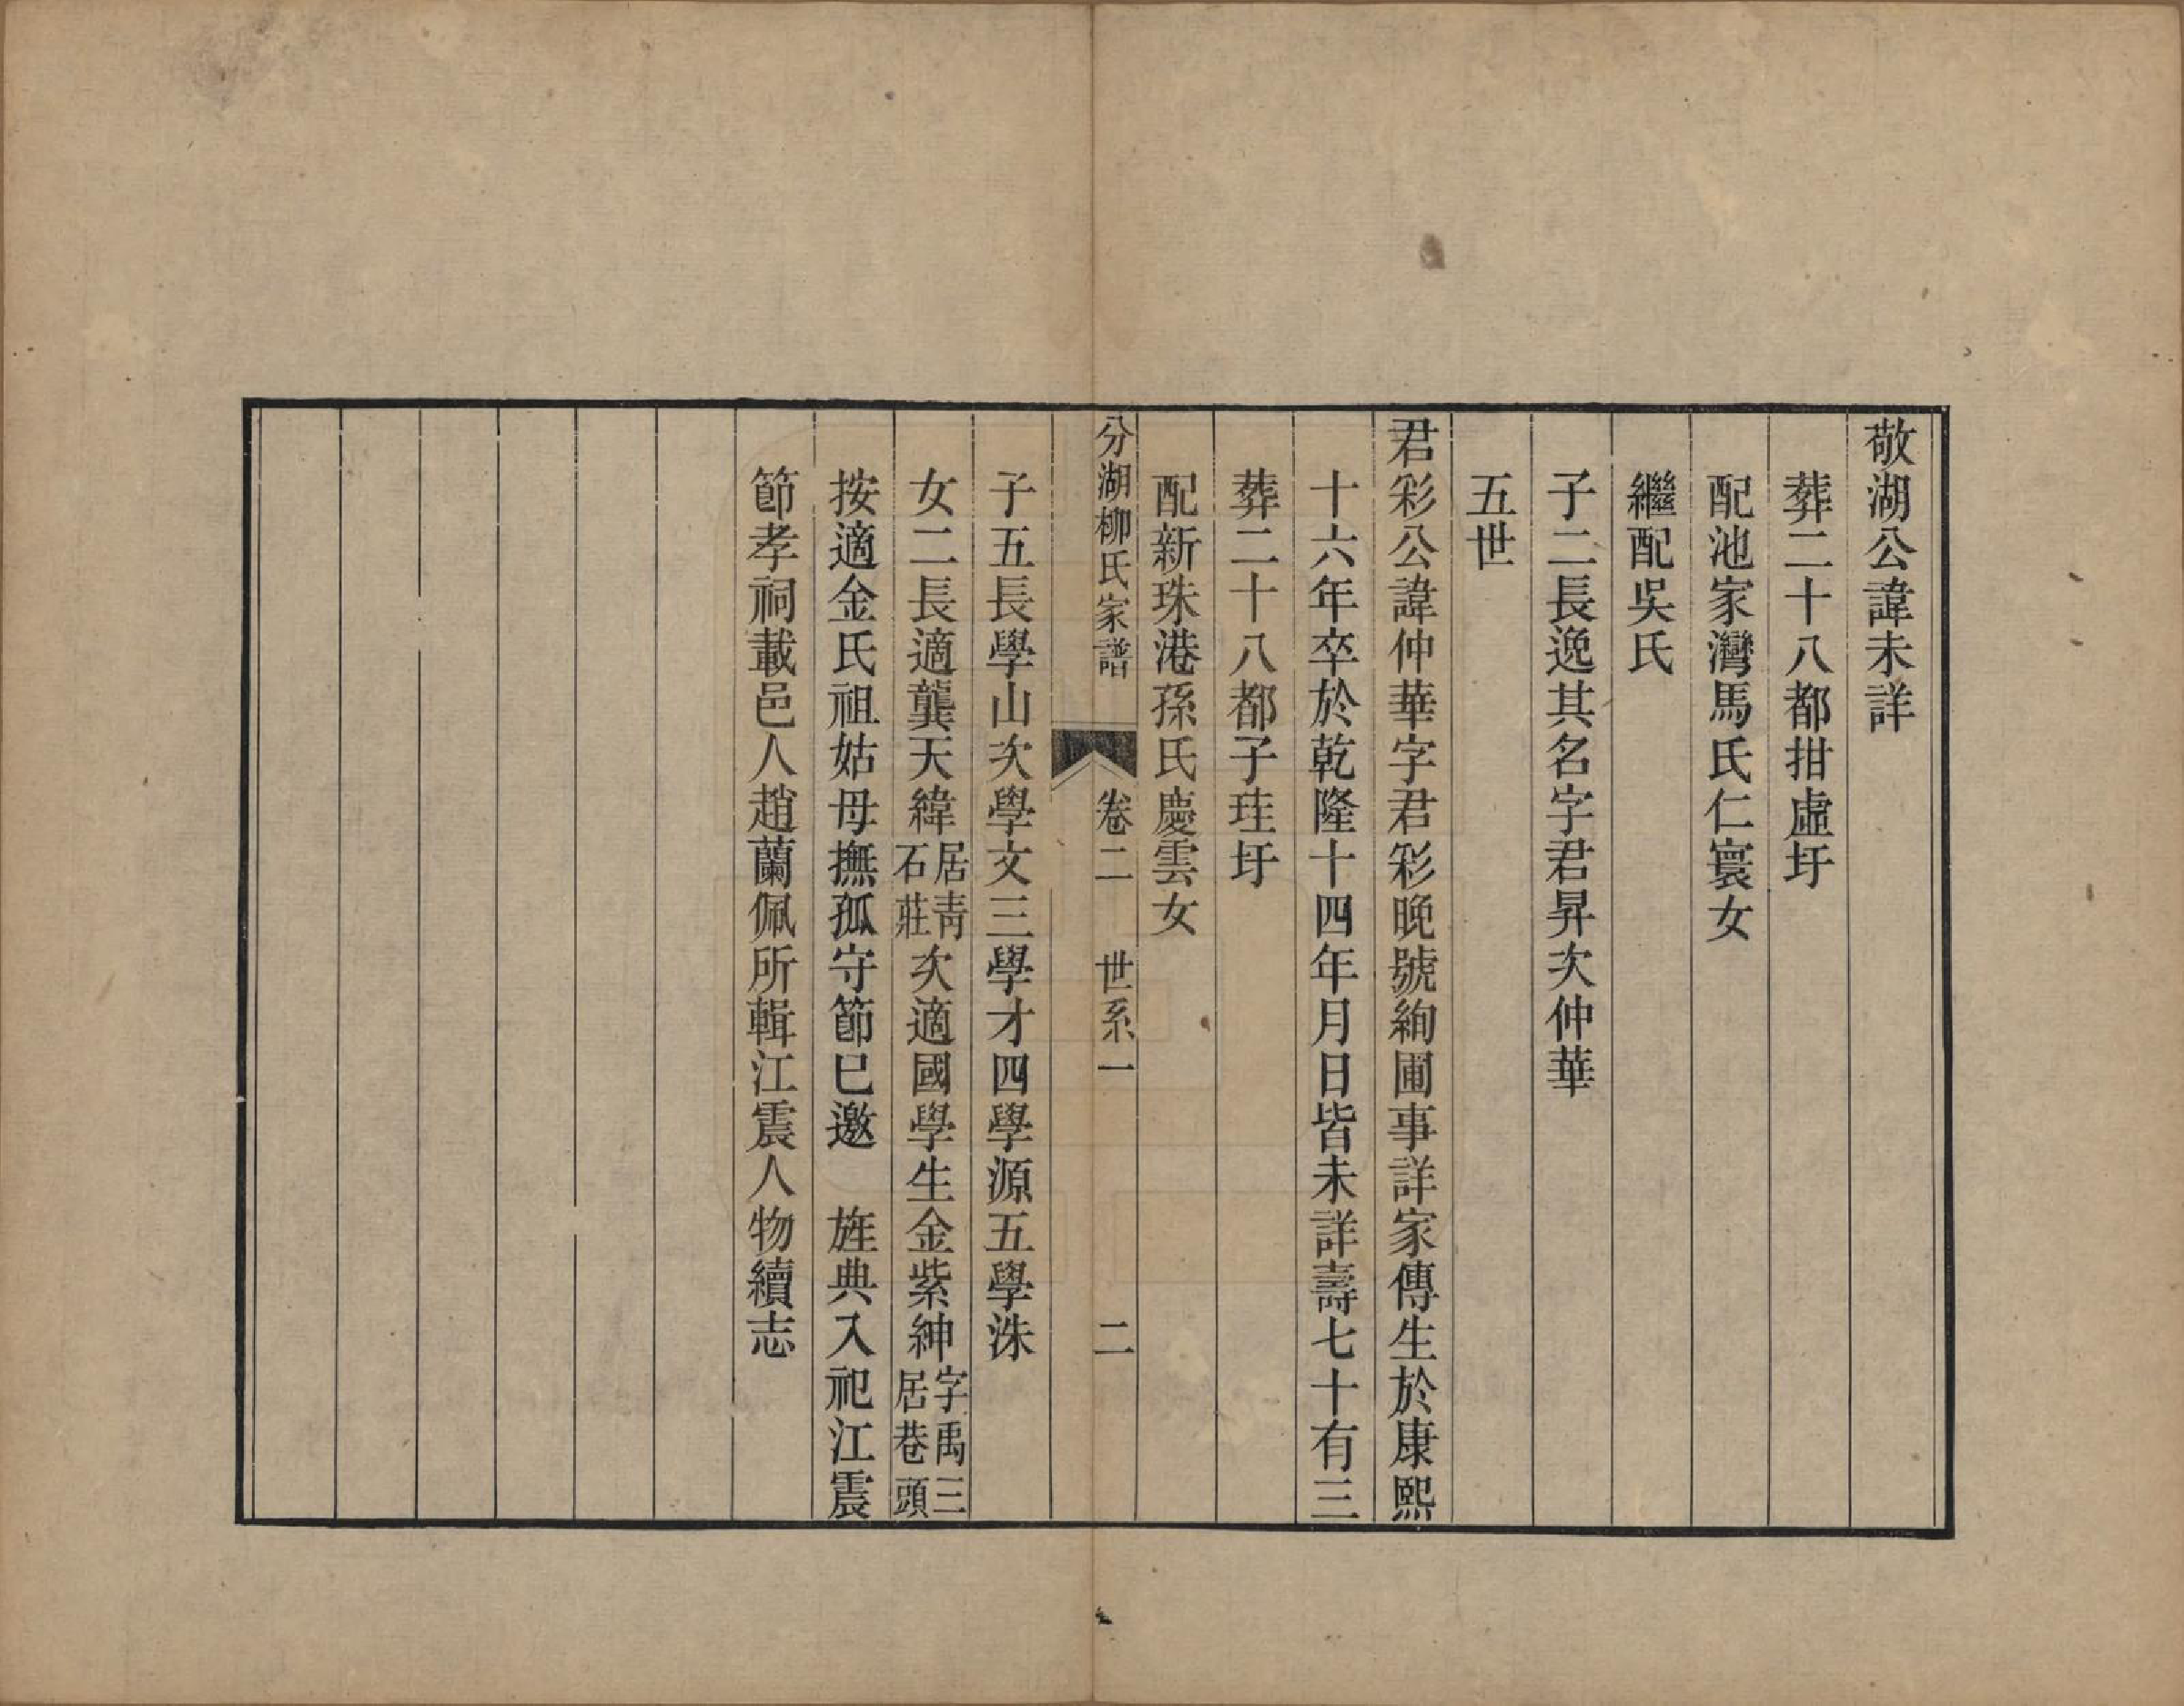 敬湖公諱未詳
葬二十八都拑虛圩
配池家灣馬氏仁寰女
繼配吳氏
子二長逸其名字君昇次仲華
五世
君彩公諱仲華字君彩晚號絢圃事詳家傳生於康熙
十六年卒於乾隆十四年月日皆未詳壽七十有三
葬二十八都子珪圩
配新珠港孫氏慶雲女
分湖柳氏家譜 卷二 世系一 二
子五長學山次學文三學才四學源五學洙
女二長適龔天緯居靑石莊次適國學生金紫紳字禹三居巷頭
按適金氏祖姑母撫孤守節已邀 旌典入祀江震
節孝祠載邑人趙蘭佩所輯江震人物續志